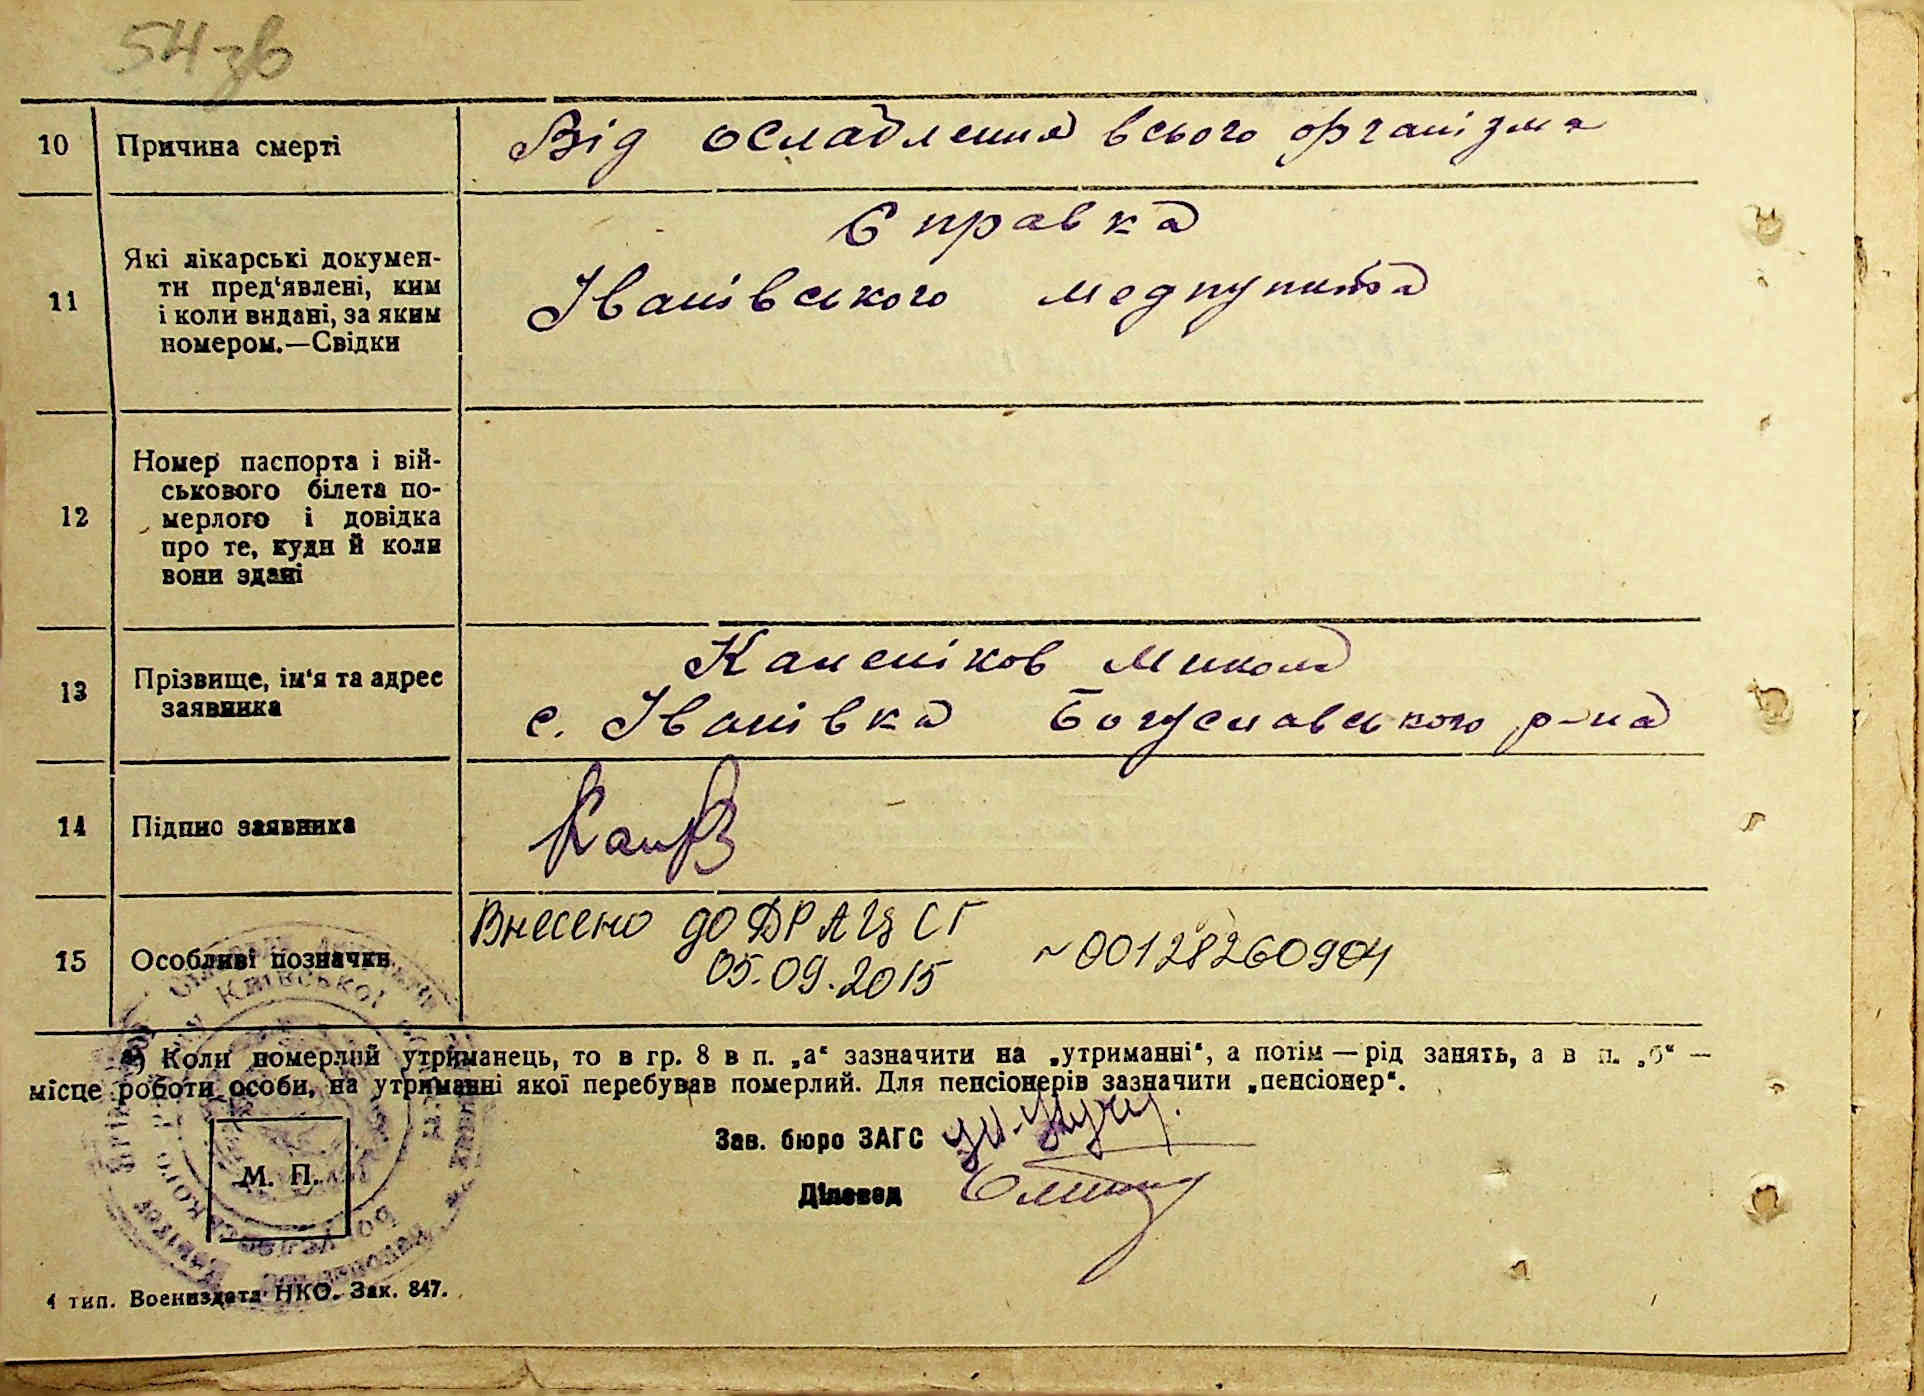 54 зв
10 Причина смерті Від ослаблення всього організма
11 Які лікарські докумен-
ти пред'явлені, ким
і коли видані, за яким
номером.—Свідки
Справка
Іванівського медпункта
12 Номер паспорта і вій-
ськового білета по-
мерлого і довідка
про те, куди й коли
вони здані
13 Прізвище, ім'я та адрес
заявника
Микола
с. Іванівка Богуславського р-на
14 Підпис заявника
15 Особливі позначки
Внесено до ДРАЦСГ
05.09.2015 ~00128260904
*) Коли померлий утриманець, то в гр. 8 в п. „а“ зазначити на „утриманні“, а потім — рід занять, а в п. „б“ —
місце роботи особи, на утриманні якої перебував померлий. Для пенсіонерів зазначити „пенсіонер“.
Зав. бюро ЗАГС
Діловод
М. П.
Київської
4 тип. Воениздата НКО. Зак. 847.